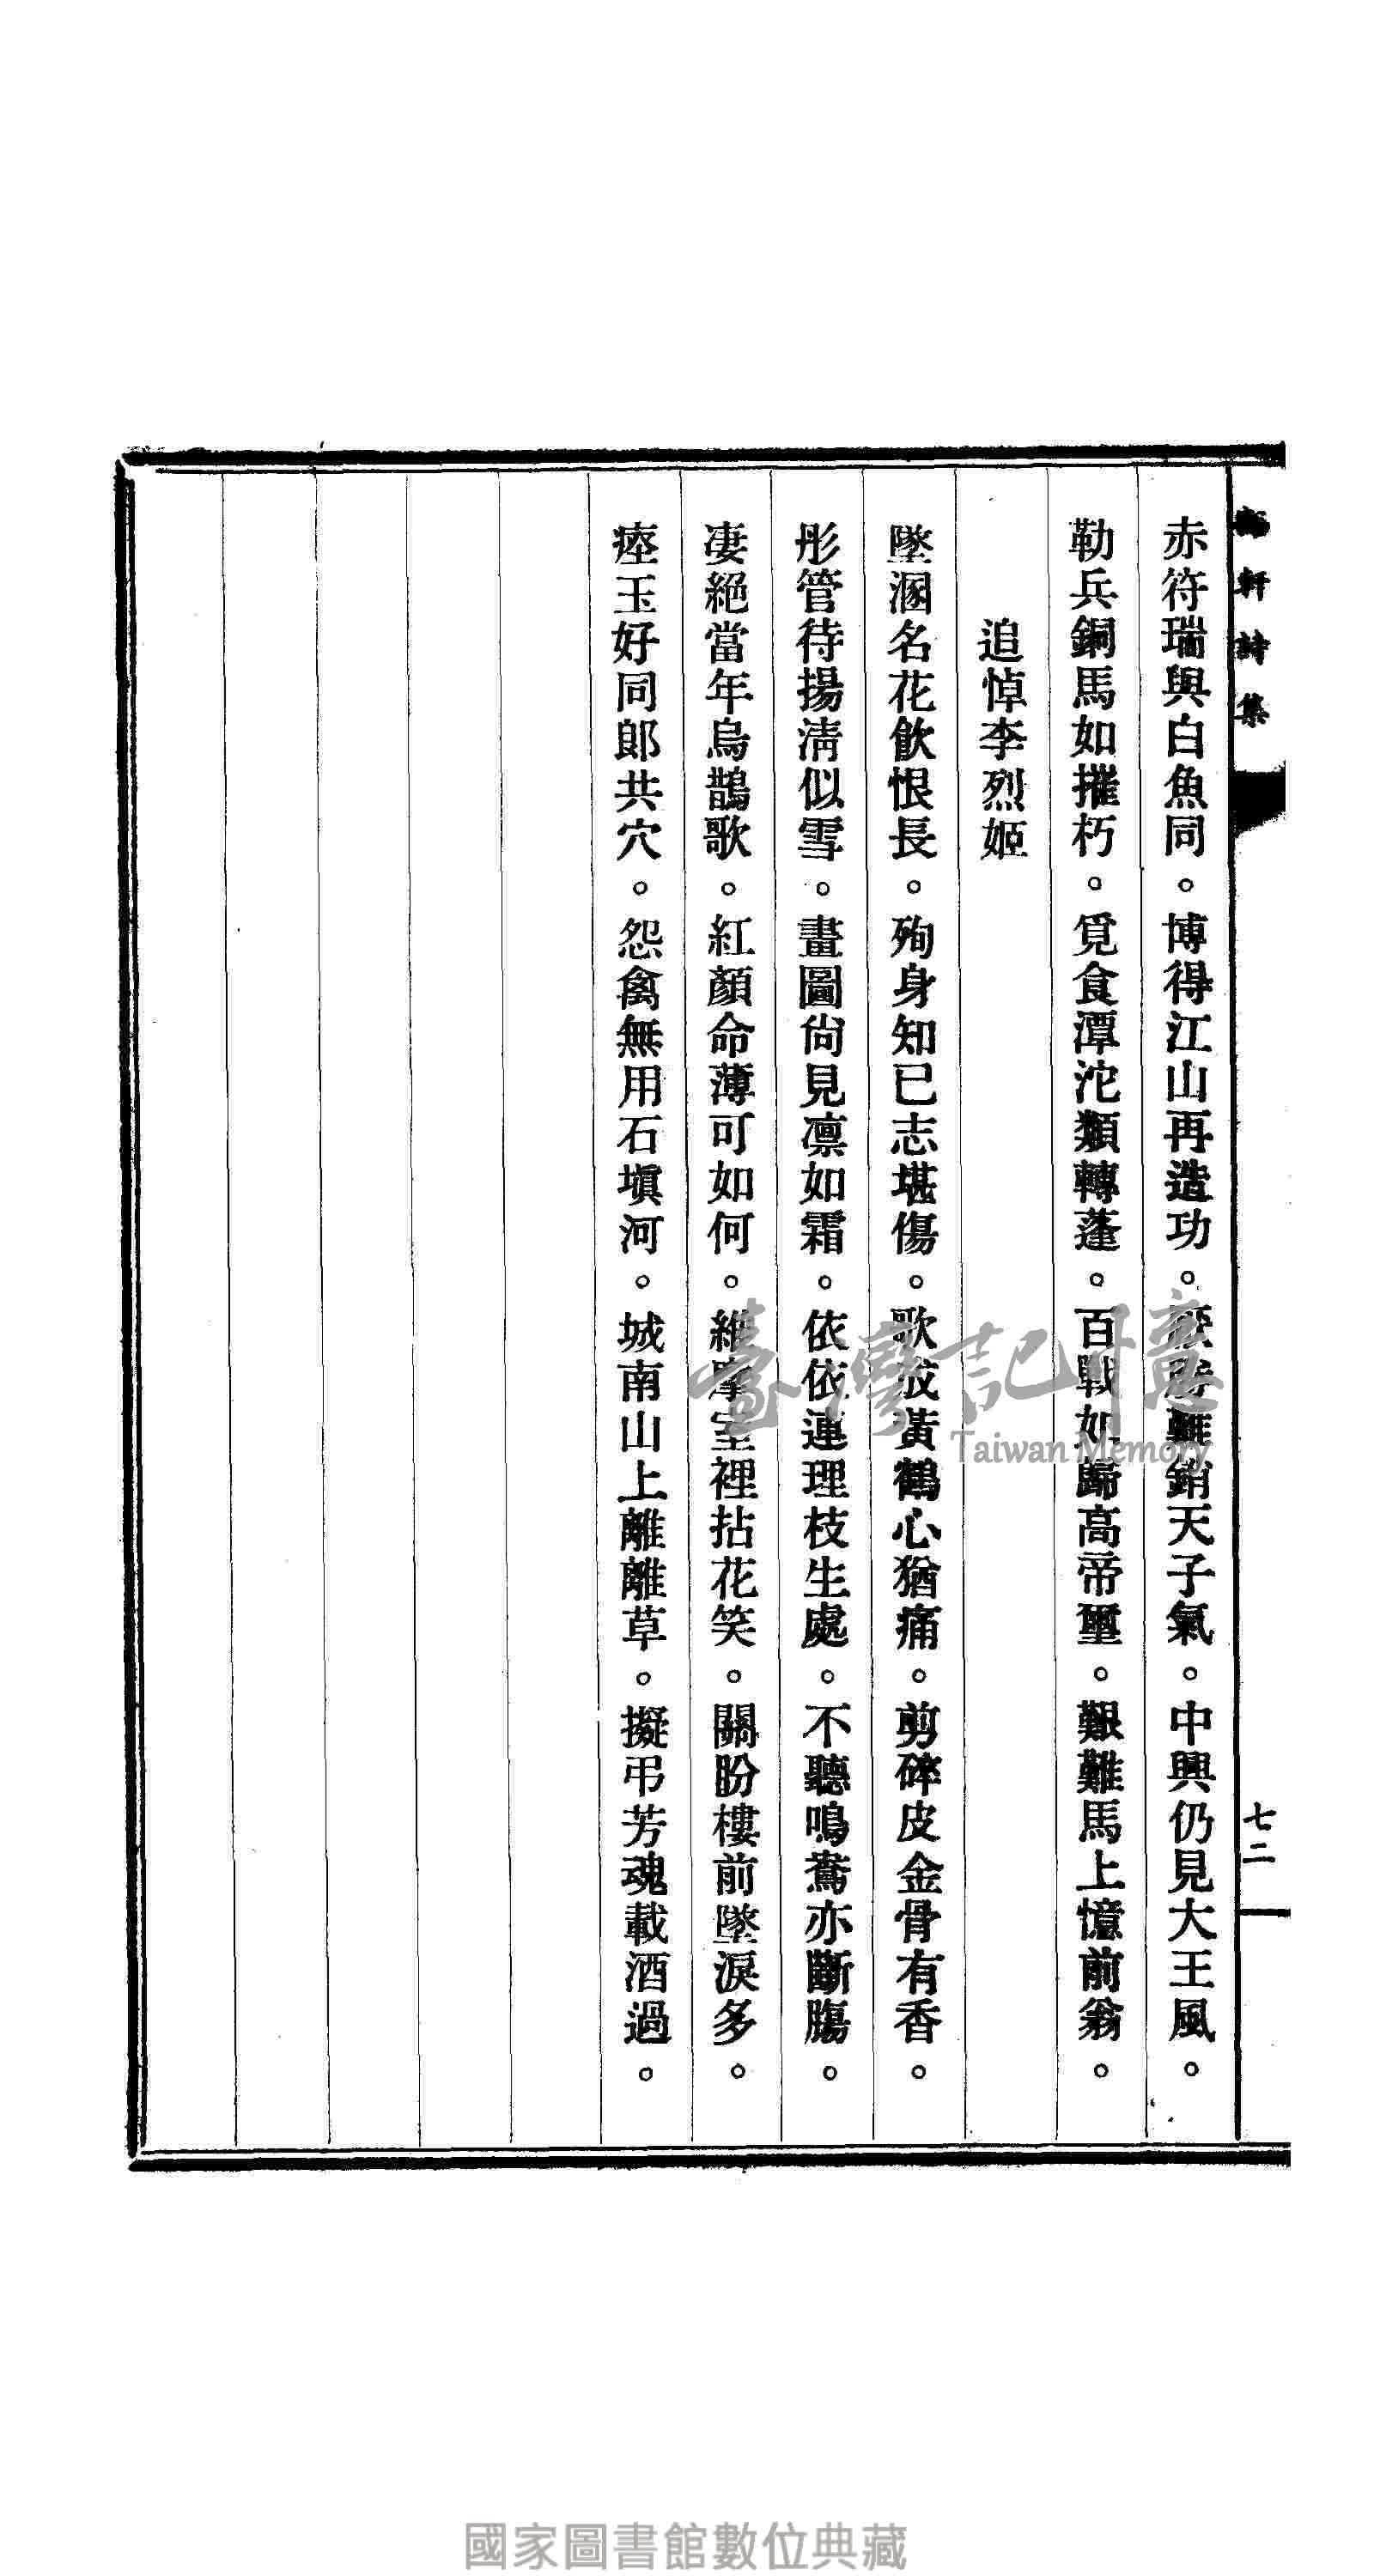 軒詩集
七二
赤符瑞與白魚同。博得江山再造功。厭勝難銷天子氣。中興仍見大王風。
勒兵銅馬如摧朽。覓食潭沱類轉蓬。百戰如歸高帝璽。艱難馬上憶前翁。
追悼李烈姬
墜溷名花飲恨長。殉身知己志堪傷。歌成黃鶴心猶痛。剪碎皮金骨有香。
彤管待揚淸似雪。畫圖尙見凛如霜。依依連理枝生處。不聽鳴鴦亦斷膓。
凄絕當年烏鵲歌。紅顏命薄可如何。維摩室裡拈花笑。關盼樓前墜淚多。
瘞玉好同郞共穴。怨禽無用石塡河。城南山上離離草。擬弔芳魂載酒過。
臺灣記憶
Taiwan Memory
國家圖書館數位典藏